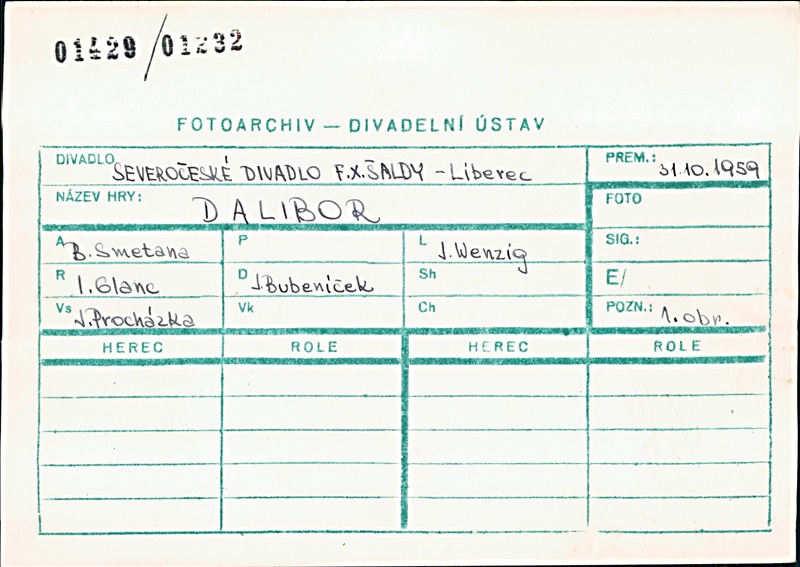 01429/01232
FOTOARCHIV — DIVADELNÍ ÚSTAV
DIVADLO SEVEROČESKÉ DIVADLO F.X.ŠALDY - Liberec
PREM.: 31.10.1959
NÁZEV HRY: DALIBOR
FOTO
A B.Smetana
P
L J.Wenzig
SIG.:
R I.Glanc
D J.Bubeníček
Sh
E/
Vs J.Procházka
Vk
Ch
POZN.: 1.obr.
HEREC ROLE HEREC ROLE